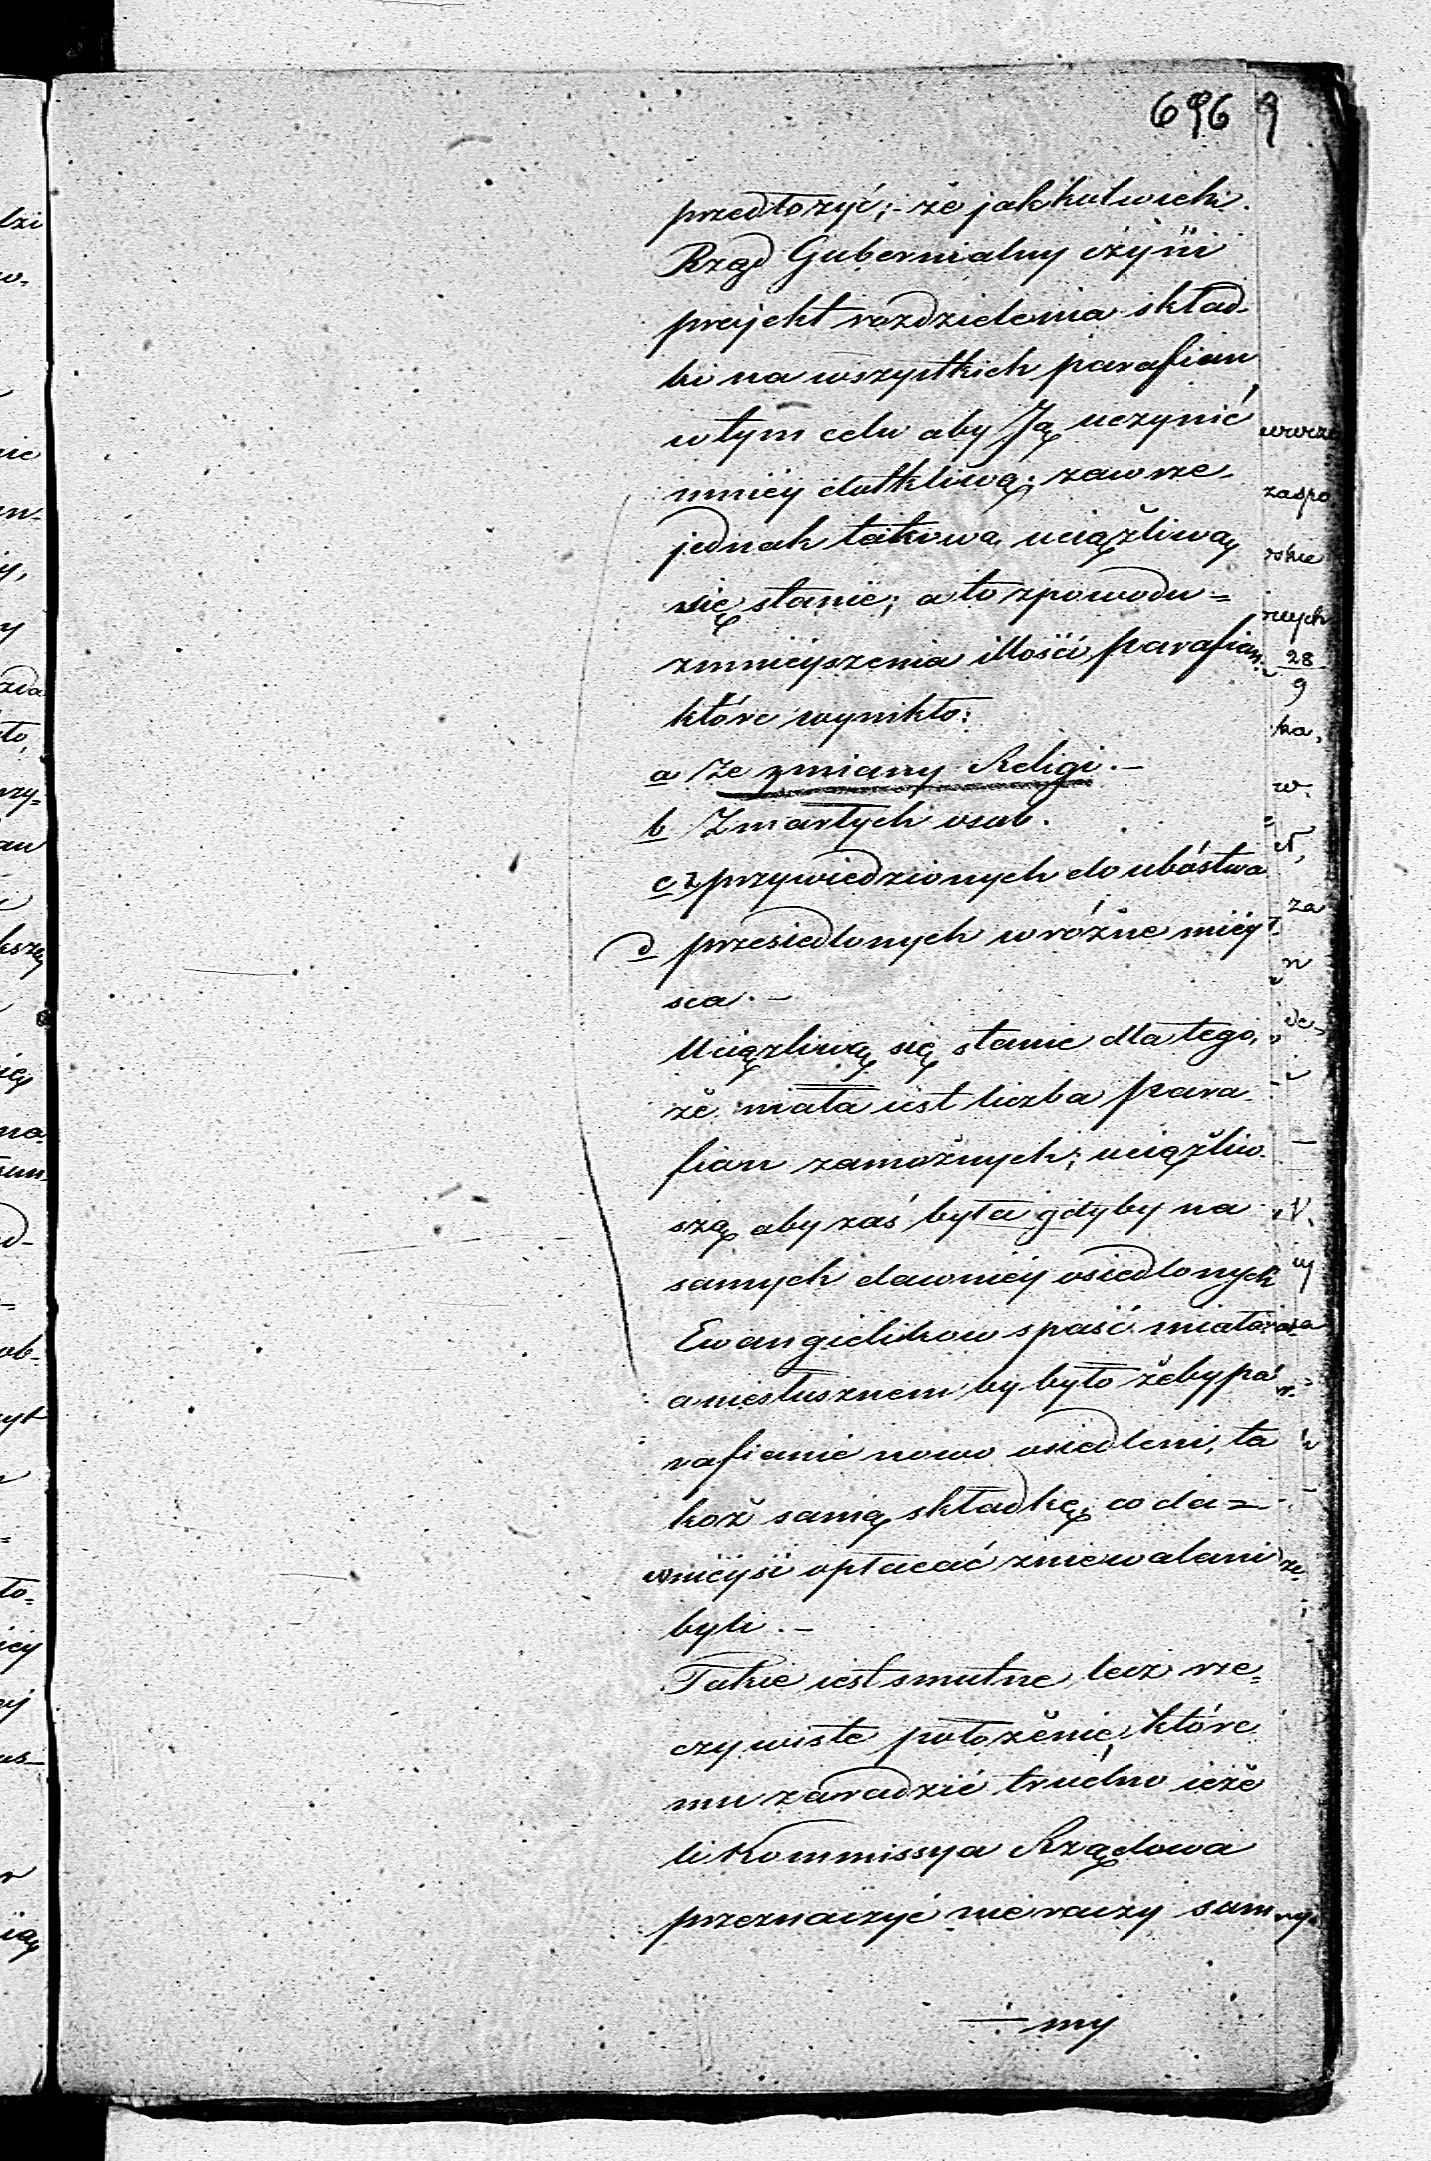 696 9
przedłożyć; że jakkolwiek
Rząd Gubernialny czyni
projekt rozdzielenia skład-
ki na wszystkich parafian
w tym celu aby Ją uczynić
mniéy dotkliwą; zawsze
jednak takowa uciążliwą
się stanie; a to z powodu=
zmnieyszenia illości parafian
które wynikło:
a Ze zmiany Religi.—
b Zmarłych osob.
c z przywiedzionych do ubóstwa
d przesiedlonych w różne miéy-
sca.—
Uciążliwą się stanie dla tego,
że mała iest liczba para-
fian zamożnych; uciążliw-
szą aby zaś była gdyby na
samych dawniéy osiedlonych
Ewangielikow spaść miała
a niesłusznem by było żeby pa-
rafianie nowo osiedleni, ta
koż samą składkę; co da=
wniéysi opłacać zniewalani
byli.—
Takie iest smutne lecz rze=
czywiste położenie, które
mu zaradzić trudno ieże
li Kommissya Rządowa
przeznaczyć nie raczy sum
my